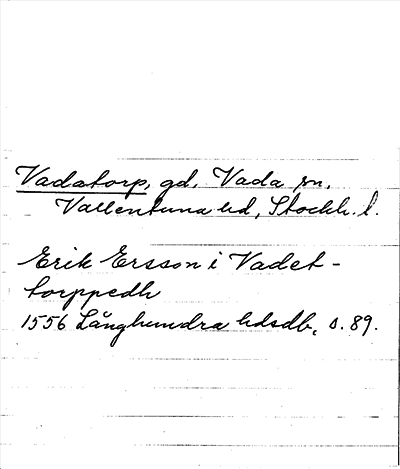 Vadatorp, gd, Vada sn,
Vallentuna hd, Stockh. l.
Erik Ersson i Vadet-
torppedh
1556 Långhundra hdsdb, s. 89.